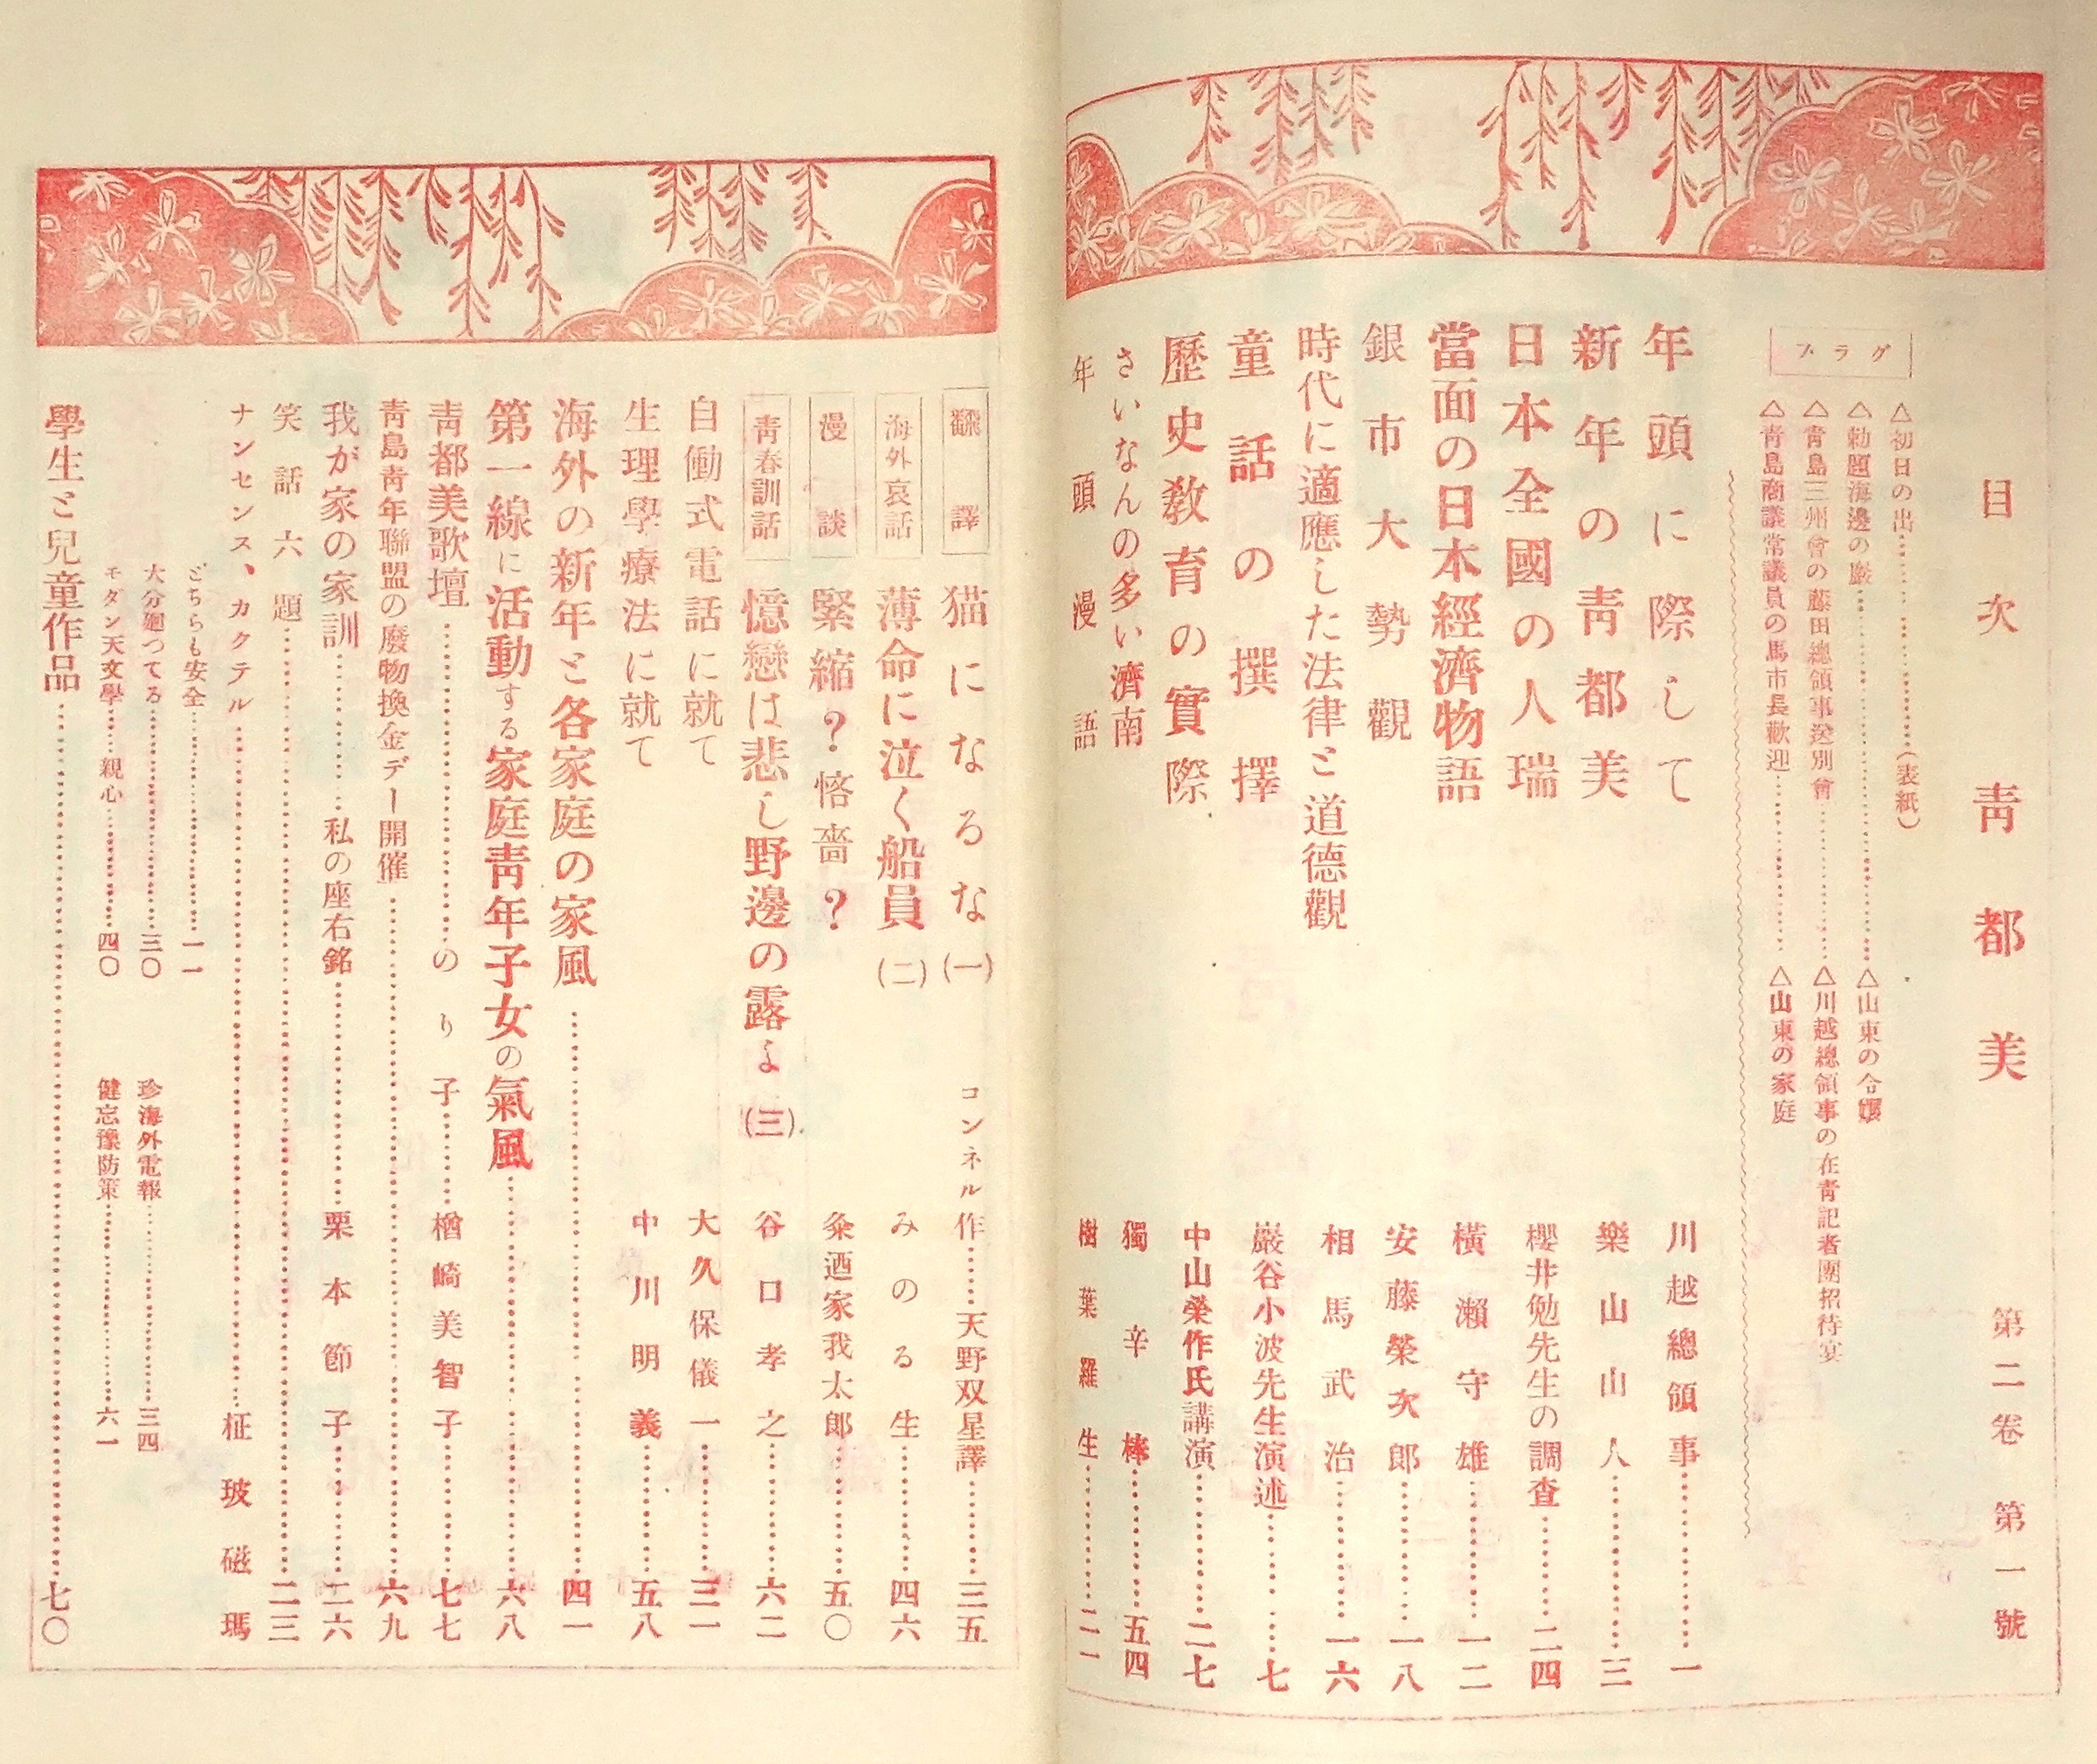 目次　靑都美　第二卷　第一號
グラフ
△初日の出……………(表紙)
△勅題海邊の巖……………△山東の令孃
△靑島三州會の藤田總領事送別會……………△川越總領事の在靑記者團招待宴
△靑島商議常議員の馬市長歡迎……………△山東の家庭
年頭に際して　川越總領事……………一
新年の靑都美　樂山山人……………三
日本全國の人瑞　櫻井勉先生の調査……………二四
當面の日本經濟物語　橫瀨守雄……………一二
銀市大勢觀　安藤榮次郎……………一八
時代に適應した法律と道德觀　相馬武治……………一六
童話の撰擇　巖谷小波先生演述……………七
歷史敎育の實際　中山榮作氏講演……………二七
さいなんの多い濟南　獨辛棒……………五四
年頭漫語　樹葉羅生……………二一
飜譯　猫になるな(一)　コンネル作……天野双星譯……………三五
海外哀話　薄命に泣く船員(二)　みのる生……………四六
漫談　緊縮？悋嗇？　粂迺家我太郎……………五〇
靑春訓話　憶戀は悲し野邊の露よ(三)　谷口孝之……………六二
自働式電話に就て　大久保儀一……………三一
生理學療法に就て　中川明義……………五八
海外の新年と各家庭の家風……………四一
第一線に活動する家庭靑年子女の氣風……………六八
靑都美歌壇……………のり子……………楢崎美智子……………七七
靑島靑年聯盟の廢物換金デー開催……………六九
我が家の家訓……………私の座右銘……………栗本節子……………二六
笑話六題……………二三
ナンセンス、カクテル……………柾玻磁瑪
どちらも安全……………一一
大分廻つてる……………三〇　珍海外電報……………三四
モダン天文學……親心……………四〇　健忘豫防策……………六一
學生と兒童作品……………七〇